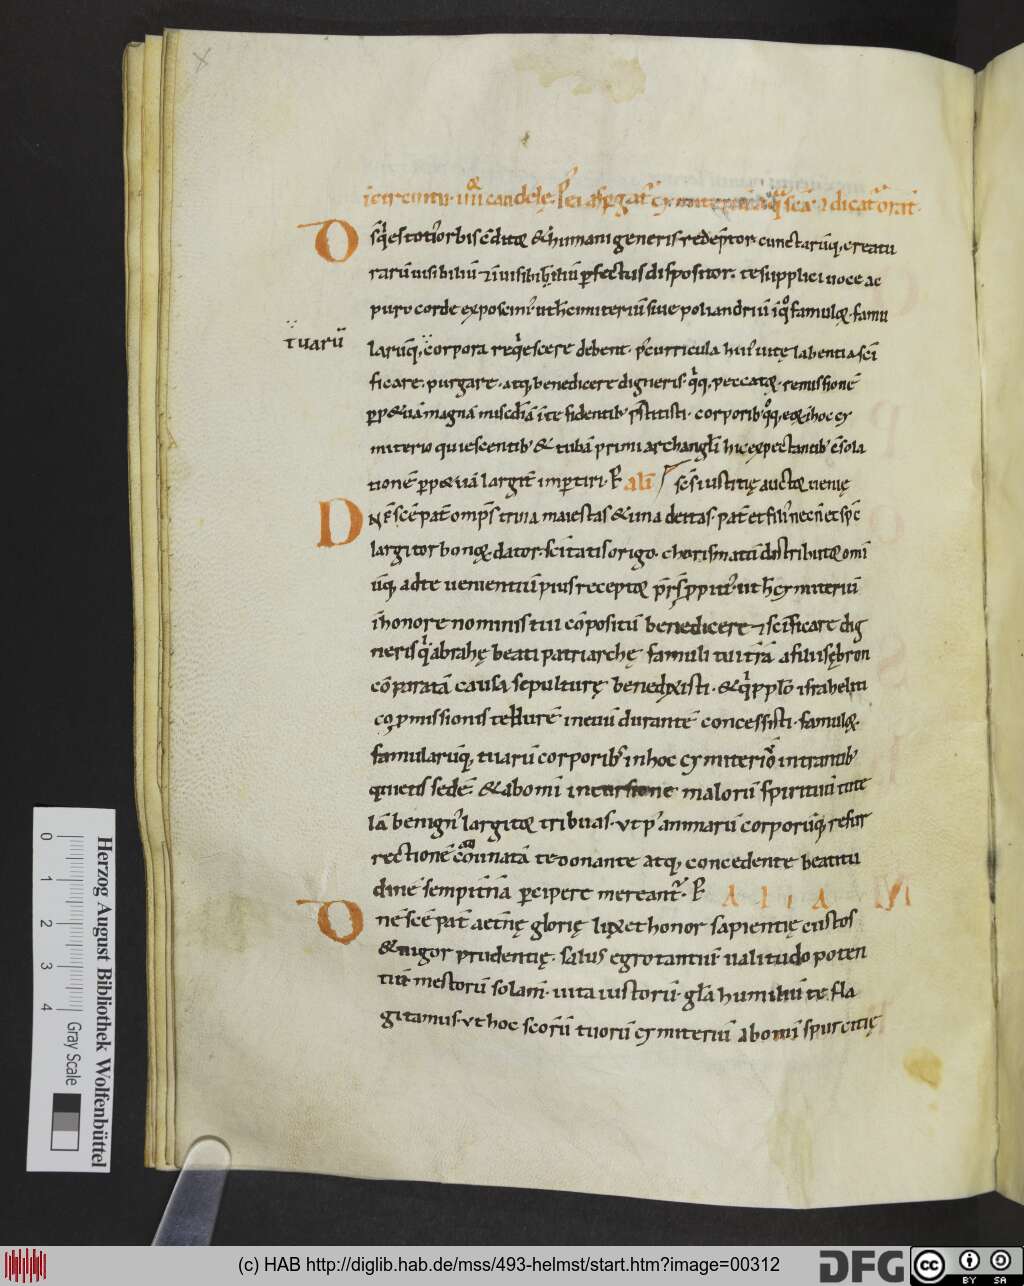 in circuitu · iiii candelę · Post ea aspergat cymiterium aqua scā & dicat orat̄.
Ds̄ qui es totius orbis cōditor & humani generis redēptor · cunctarūq; creatu
rarū uisibiliū & inuisibiliū perfectus dispositor · te supplici uoce ac
puro corde exposcim̄ · ut hoc cimiteriū siue poliandriū in quo famulorum · famu
tuarū
larūq; corpora requiescere debent · post curricula huius uitę labentia sci
ficare · purgare · atq; benedicere digneris · quiq; peccatorum · remissionē
per tuā magnā misc̄diā in te fidentib; prestitisti · corporib; quoq; eorum in hoc cy
miterio quiescentib; & tubā primi archangeli hic expectantib; c̄sola
tionē perpetuā largiter impertiri · Per
alī
Scē s̄ iustitię auctor uenię
Dn̄e scē pat̄ omp̄s trina maiestas & una deitas · pat̄ et filius necn̄ et sps̄
largitor bonorum · dator sc̄itatis origo · charismatū distributor omī
ūq; ad te uenientiū pius receptor · presta propitius · ut hoc cymiteriū
in honore nominis tui cōpositū benedicere & sc̄ificare dig
neris qui abrahę beati patriarchę famuli tui terrā a filiis ębron
cōparatā causa sepulturę benedixisti · & qui populo israhelīti
co promissionis tellurē in euū durantē concessisti · famulorum
famularūq; tuarū corporib; in hoc cymiterio intrantib;
quietis sedē · & ab omī incursione malorū spirituū tute
lā benignus largitor tribuas · ut post animarū corporūq; resur
rectionē coadunatā te donante atq; concedente beatitu
dinē sempit̄nā percipere mereant̄ · Per
ALIA
Dn̄e scē pat̄ aet̄nę glorię lux et honor sapientię custos
& uigor prudentię · salus egrotantiū · ualitudo poten
tiū · mestorū solamē · uita iustorū · gl̄a humiliū te fla
gitamus · ut hoc sc̄orū tuorū cymiteriū ab omī spurcitię
Herzog August Bibliothek Wolfenbüttel
0 1 2 3 4 Gray Scale
(c) HAB http://diglib.hab.de/mss/493-helmst/start.htm?image=00312
DFG
cc BY SA